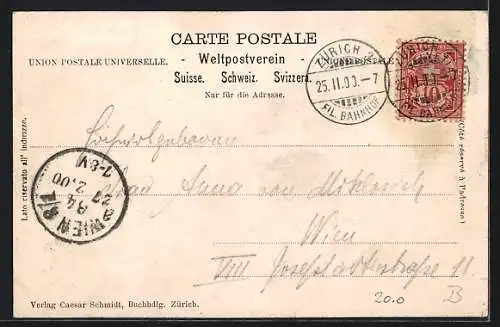 CARTE POSTALE
- Weltpostverein -
UNION POSTALE UNIVERSELLE.
UNION POSTALE
Suisse. Schweiz. Svizzera.
Nur für die Adresse.
ZÜRICH 2
25.II.00.-7
FIL. BAHNHOF
ZÜRICH
25.II.0
10
Lato riservato all' indirizzo.
(Côté réservé à l'adresse)
Hochwolgeboren
Frau Anna von Miklosich
Wien
VIII Josefstädterstraße 11
WIEN 8/1
84
27
2.00
7-8 V
20.0
B
Verlag Caesar Schmidt, Buchhdlg. Zürich.